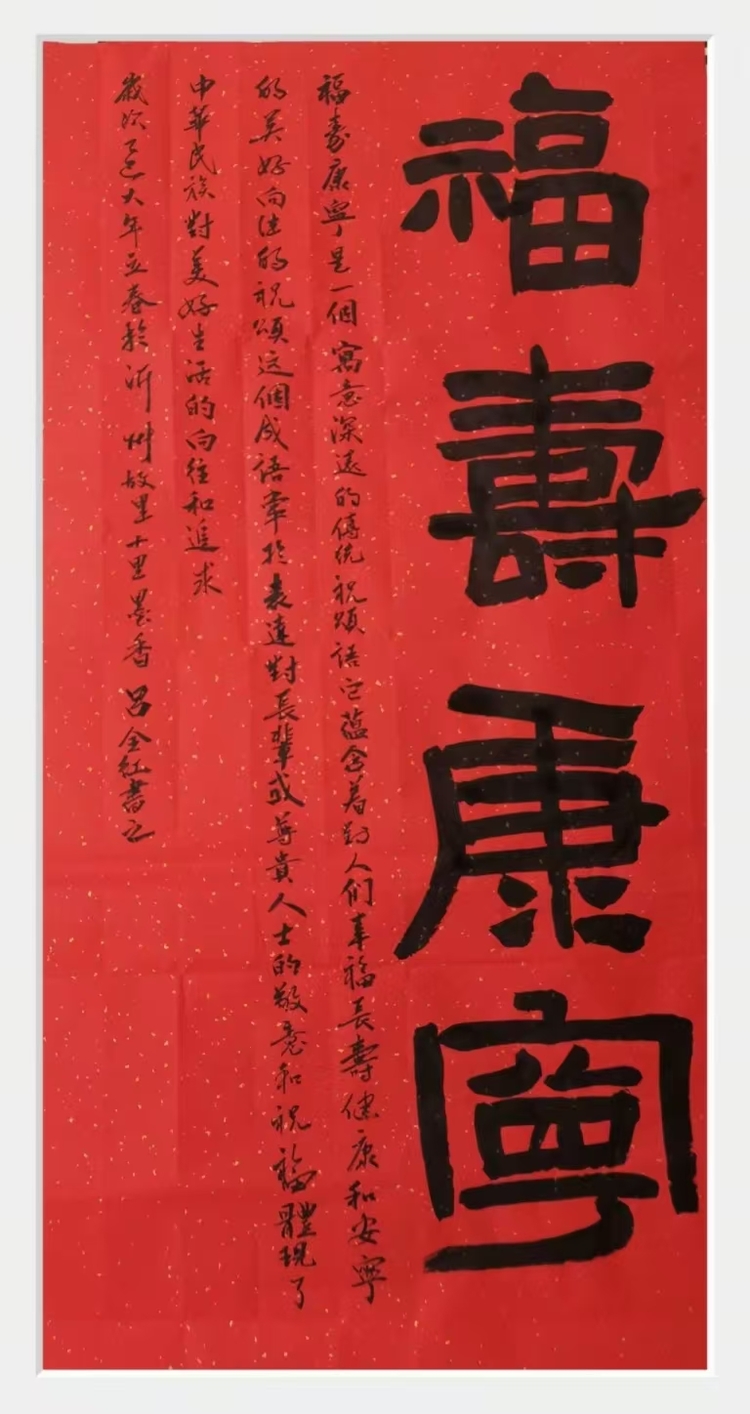 福壽康寧
福壽康寧是一個寓意深遠的傳统祝頌語它蕴含着對人们幸福長壽健康和安寧
的美好向往的祝頌这個成語常於表達對長輩或尊貴人士的敬意和祝福體現了
中華民族對美好生活的向往和追求
歲次乙巳大年立春於沂州故里十里墨香吕全红書之